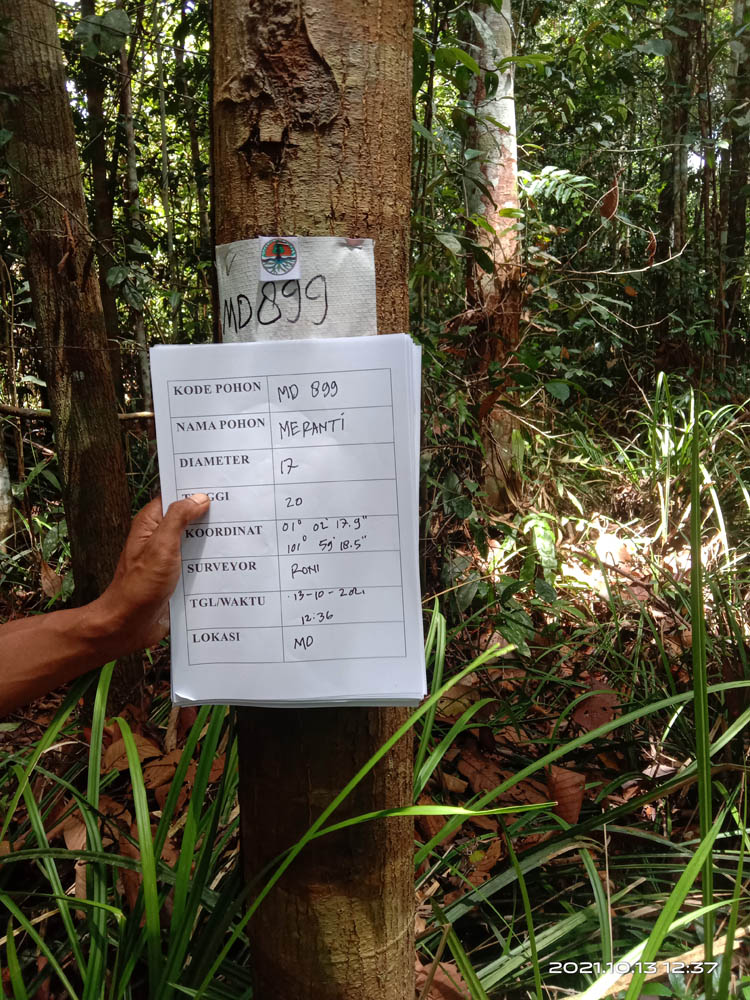 MD 899
KODE POHON MD 899
NAMA POHON MERANTI
DIAMETER 17
TINGGI 20
KOORDINAT 01° 02' 17.9"
101° 59' 18.5"
SURVEYOR RONI
TGL/WAKTU 13-10-2021
12.36
LOKASI MD
2021.10.13 12:37